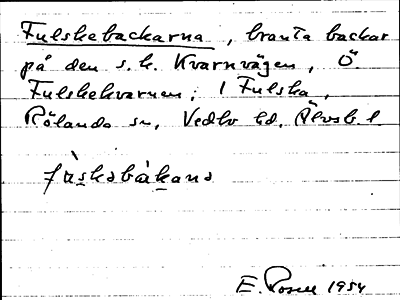 Fulskebackarna, branta backar
på den s.k. Kvarnvägen, Ö
Fulskekvarnen; 1 Fulska,
Rölanda sn, Vedbo hd, Älvsb. l.
fùskabàkana
E. Rosell 1954